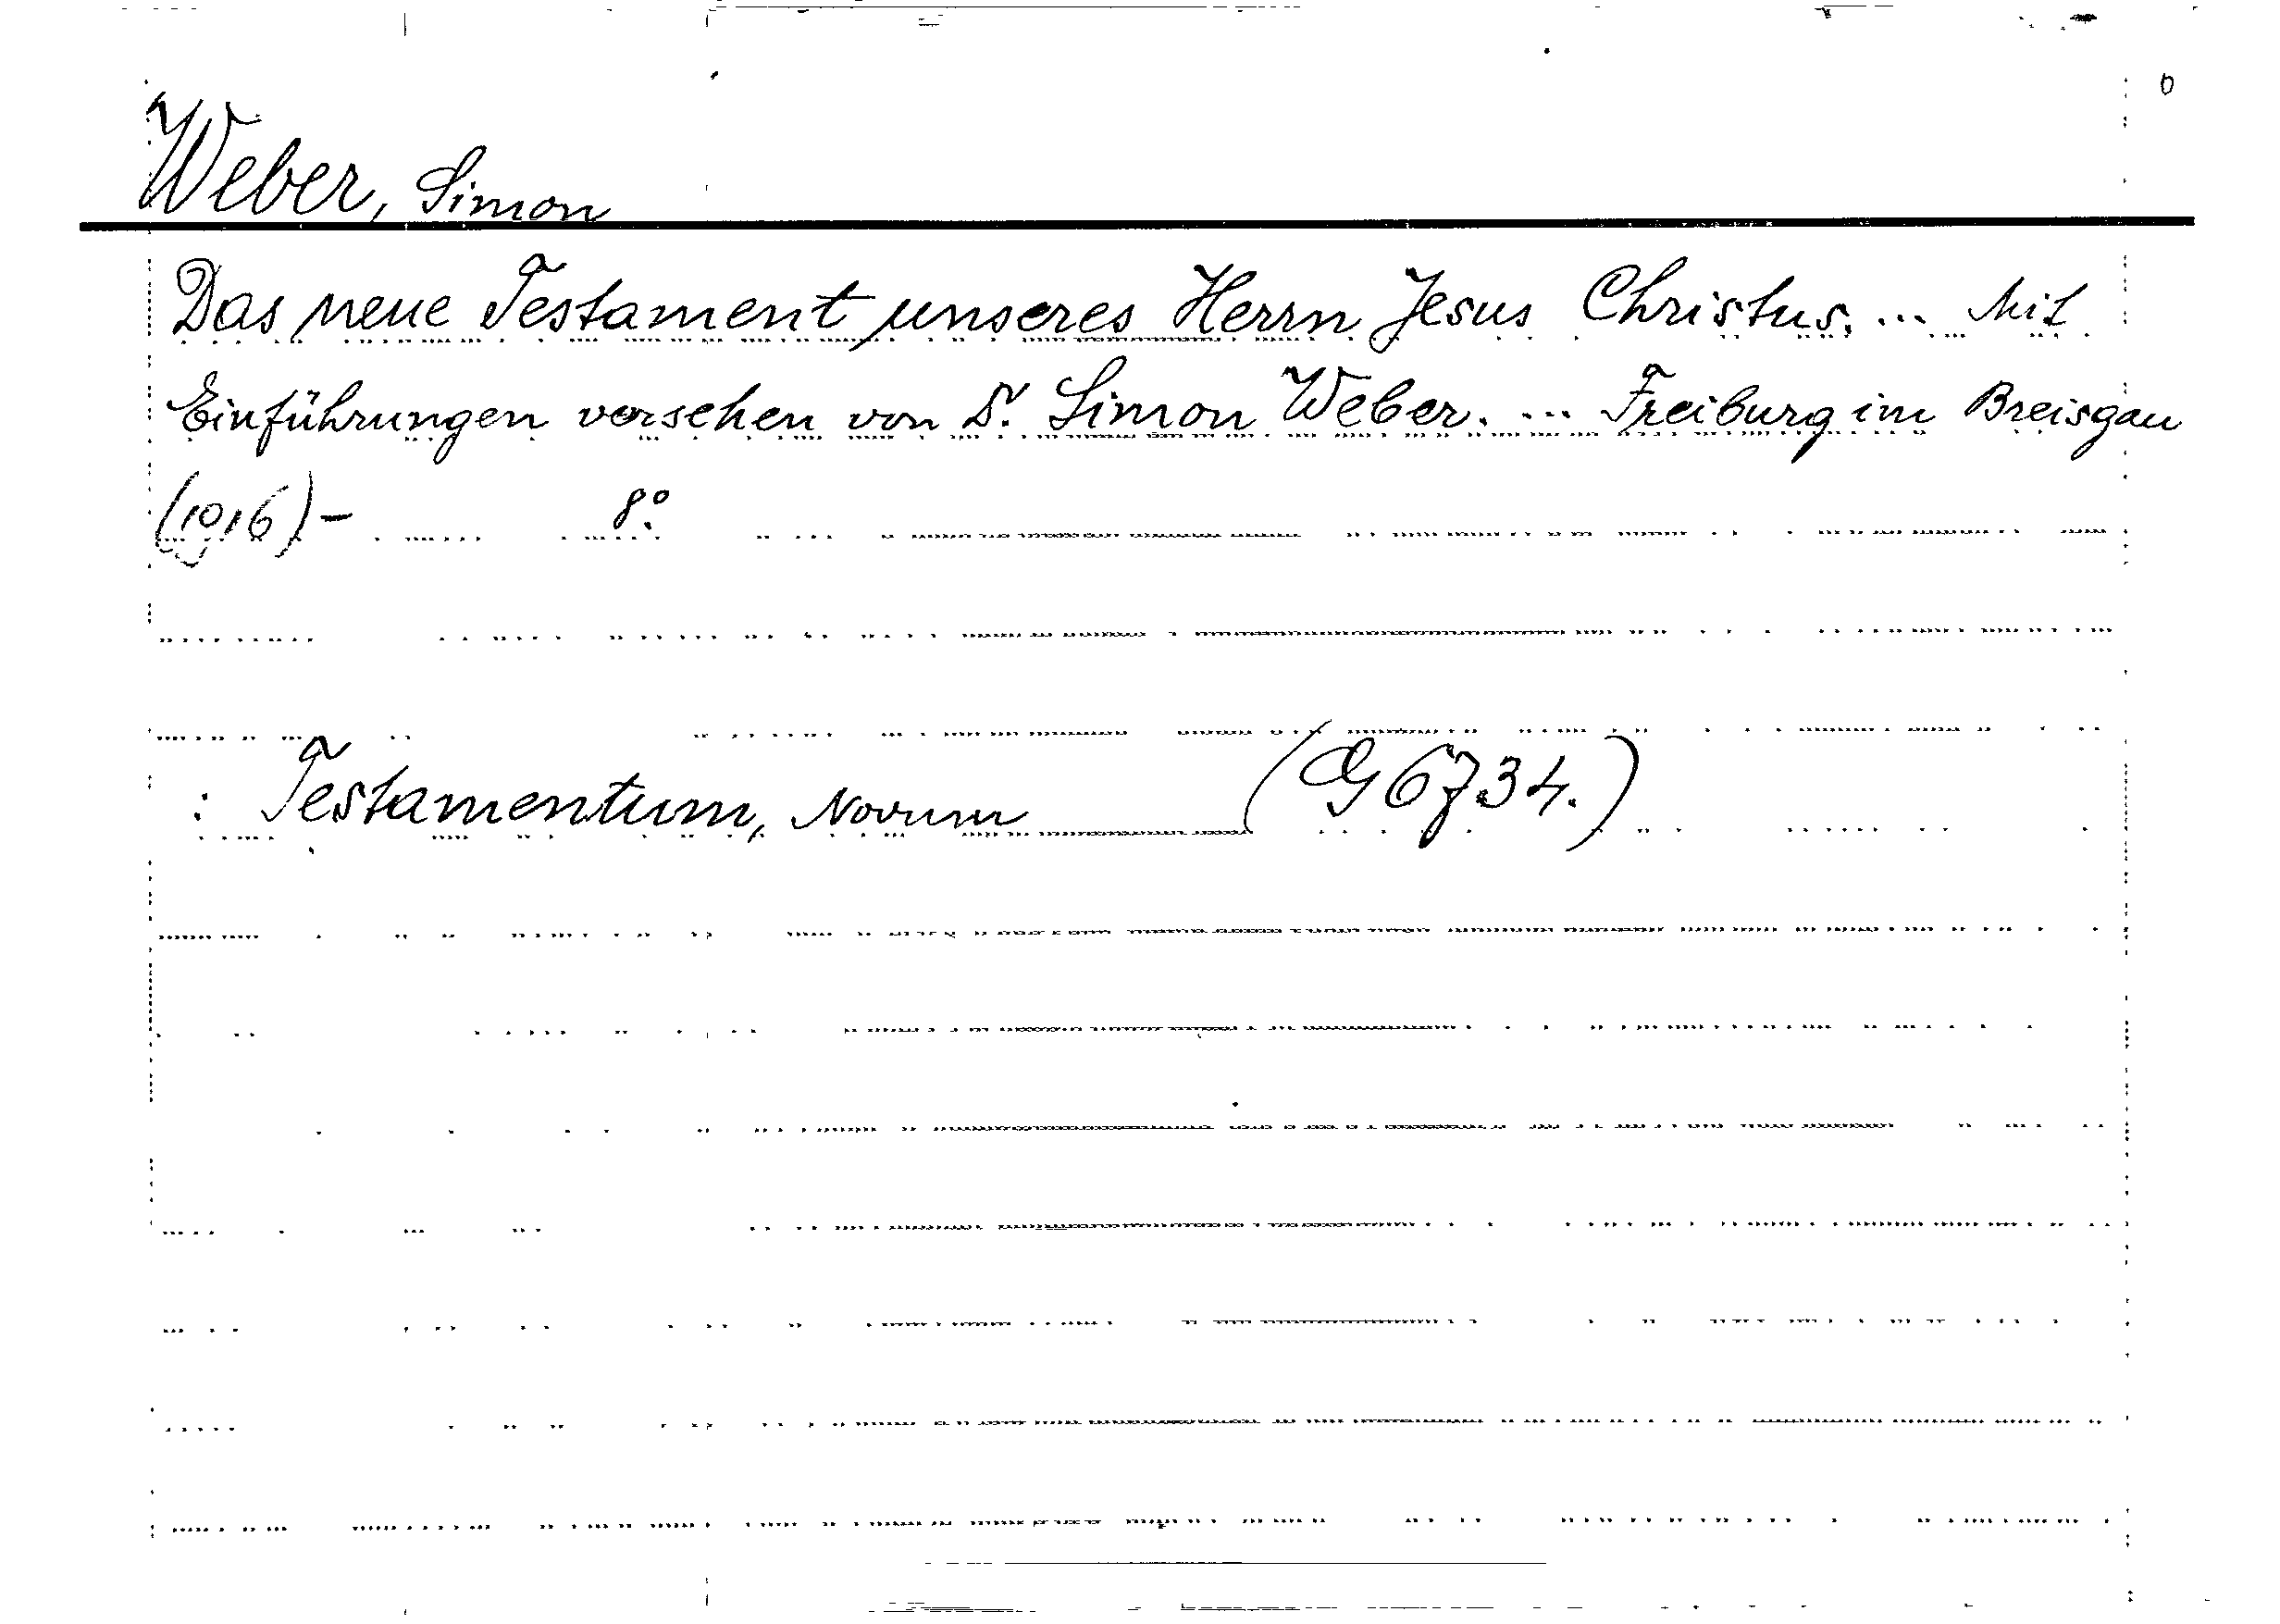 Weber, Simon
Das neue Testament unseres Herrn Jesus Christus. ... Mit
Einführungen versehen von Dr. Simon Weber. ... Freiburg im Breisgau
(1916) - 8°.
: Testamentum, Novum (G 6734.)